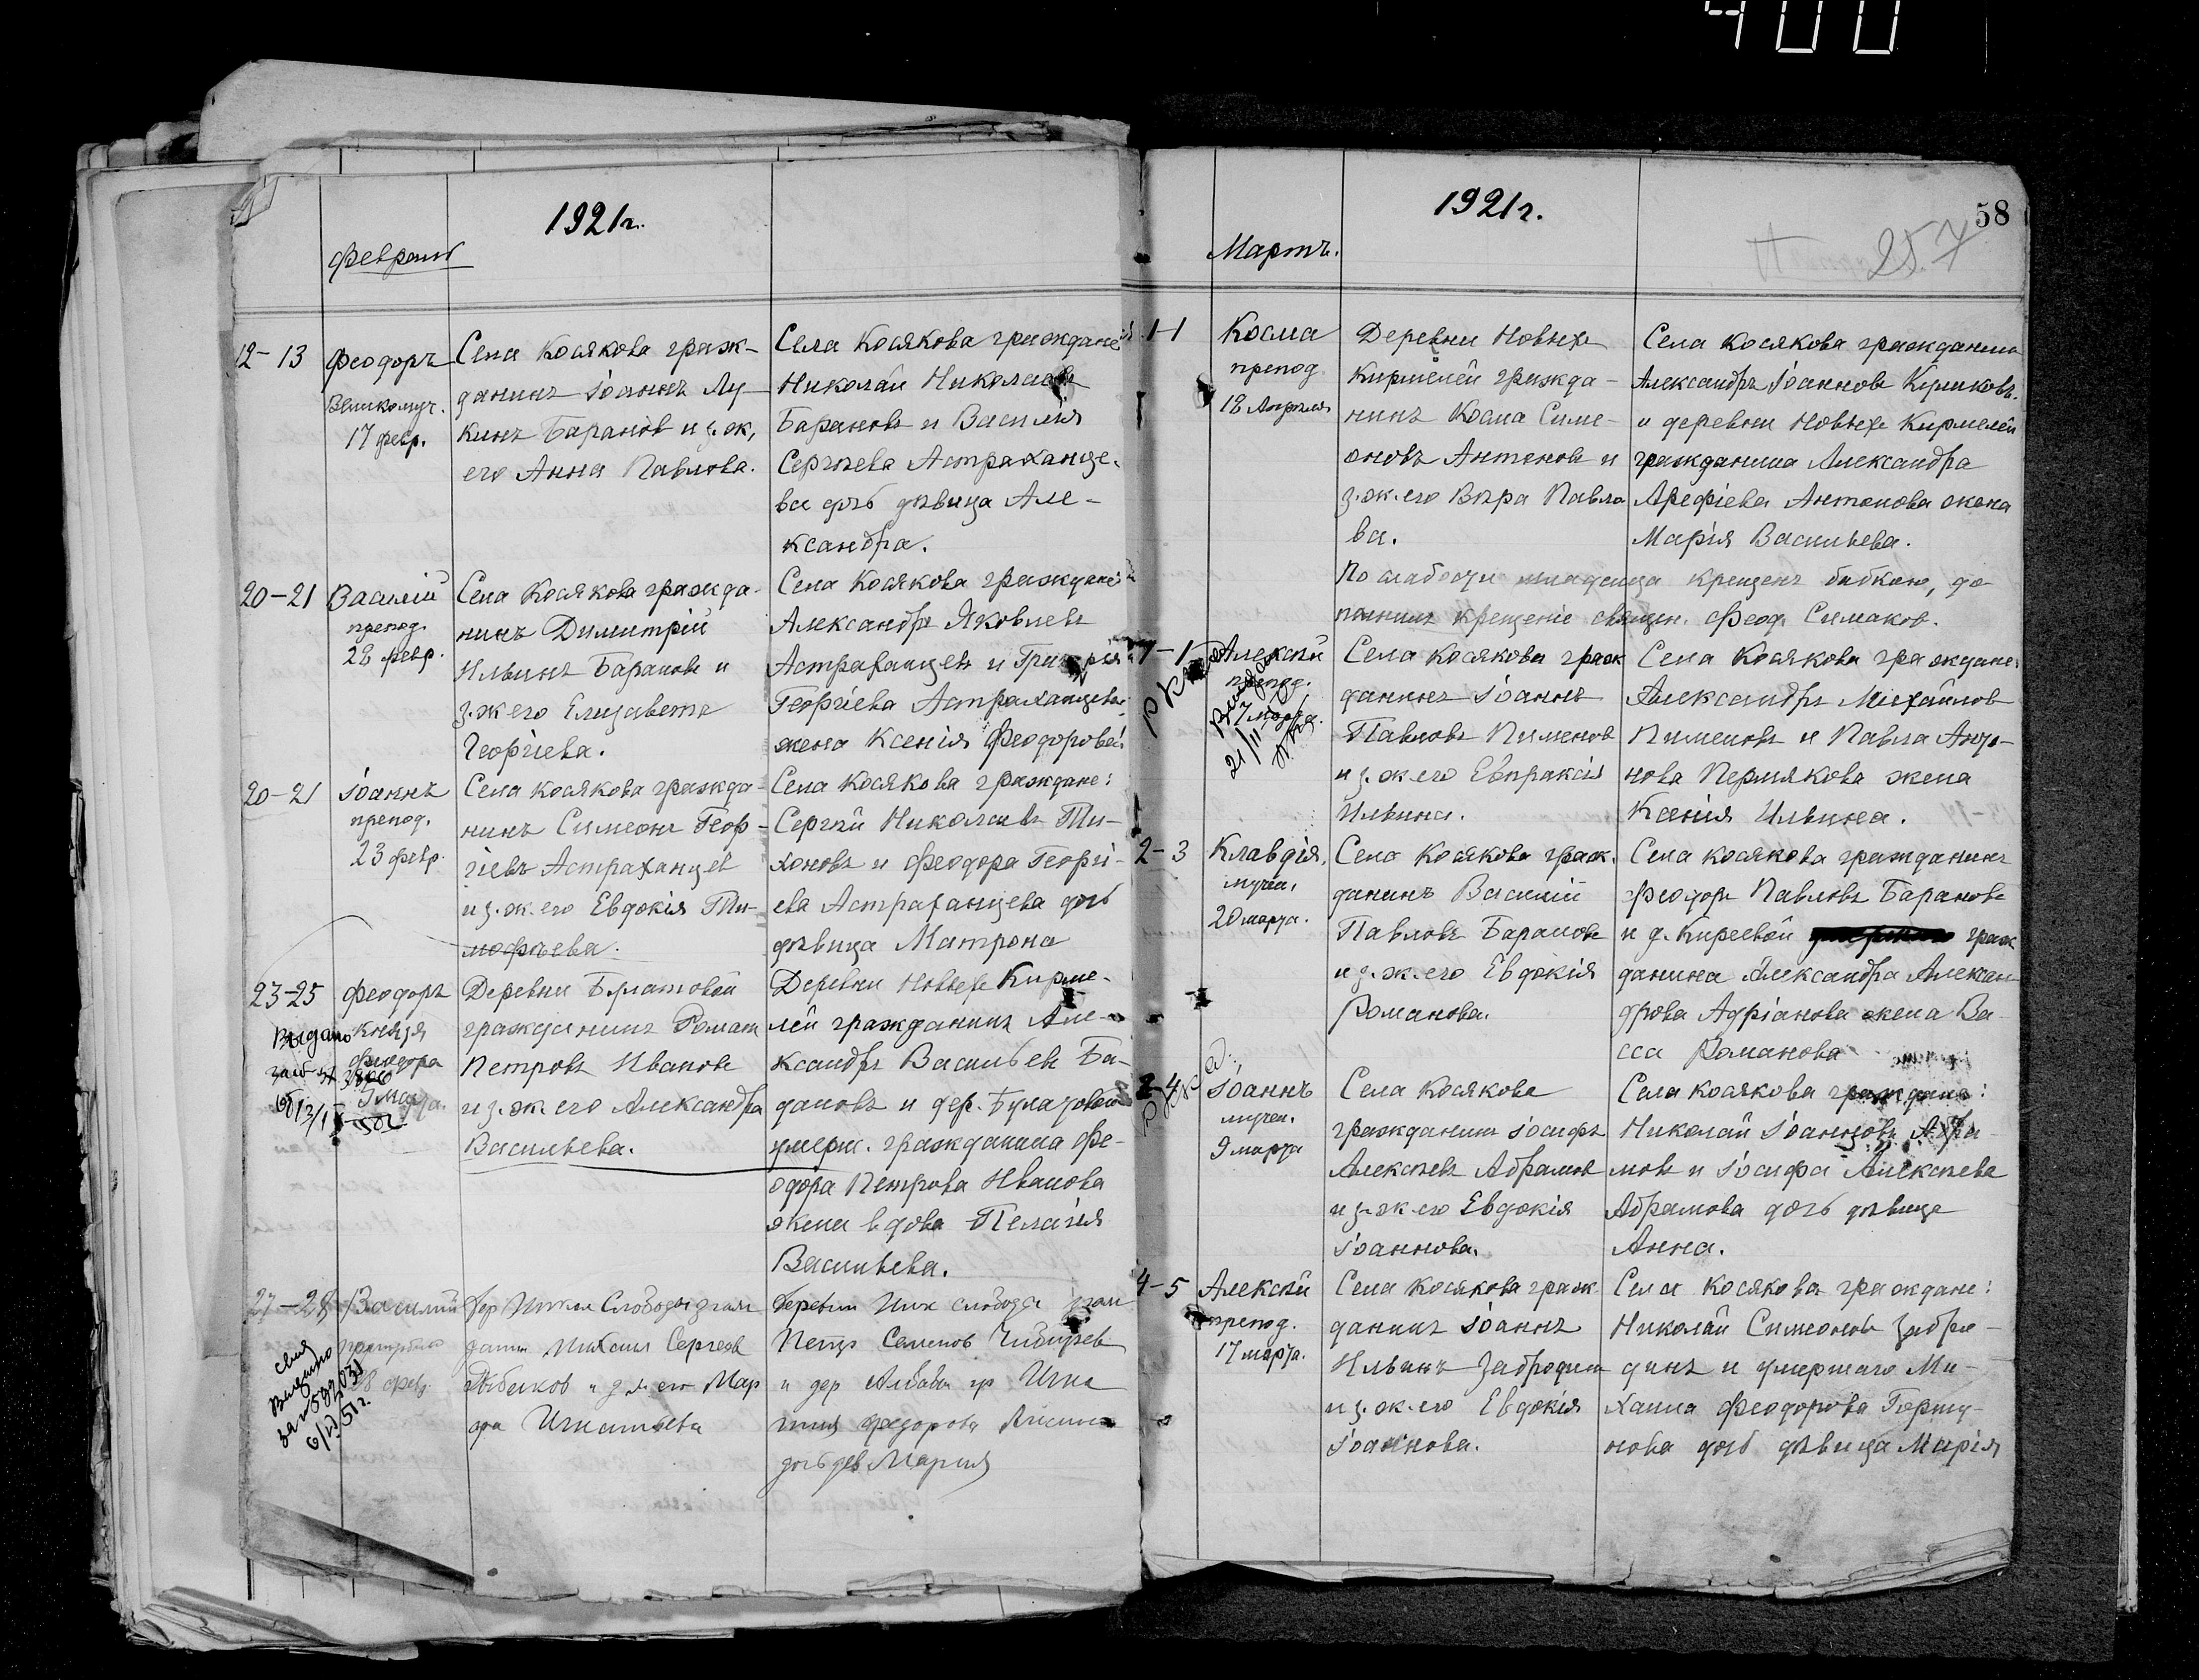 400
1921г.
Февраль
12-13
Феодоръ
Великомуч.
17 февр.
Села Косякова граж-
данинъ Іоаннъ Лу-
кинъ Баранов и з. ж.
его Анна Павлова.
Села Косякова граждане
Николай Николаевъ
Барановъ и Василія
Сергѣева Астраханце-
ва дочь дѣвица Але-
ксандра.
20-21
Василій
препод.
28 февр.
Села Косякова гражда-
нинъ Димитрій
Ильинъ Баранов и
з. ж его Елизавета
Георгіева.
Села Косякова граждане
Александръ Яковлевъ
Астраханцевъ и Григорія
Георгіева Астраханцева
жена Ксенія Феодорова
20-21
Іоаннъ
препод.
23 февр.
Села Косякова гражда-
нинъ Симеонъ Геор-
гіевъ Астраханцев
и з. ж. его Евдокія Ти-
мофѣева.
Села Косякова граждане:
Сергѣй Николаевъ Ти-
хоновъ и Феодора Георгі-
ева Астраханцева дочь
дѣвица Матрона
23-25
Феодоръ
Князя
Феодора
5 Марта.
Выдано
Деревни Булатовой
гражданинъ Роман
Петровъ Иванов
и з. ж. его Александра
Васильева.
Деревни Новыхъ Кирме-
лей гражданинъ Але-
ксандръ Васильевъ Ба-
дановъ и дер. Булатовой
умерш. гражданина Фе-
одора Петрова Иванова
жена вдова Пелагія
Васильева.
27-28
Василий
28 февр.
Выдано
дер Нижн Слободы граж
данин Сергеев
и з ж его Мар
фа Игнатьева
деревни Ниж слобода граж
Петр Семенов
и дер гр Игна
тия Федорова
дочь дев Мария
58
1921г.
25.7
Мартъ.
1-1
Косма
препод.
18 Апрѣля
Деревни Новыхъ
Кирмелей гражда-
нинъ Косма Симе-
оновъ Антонов и
з. ж. его Вѣра Павло
ва.
Села Косякова гражданинъ
Александръ Іоаннов Куликовъ.
и деревни Новыхъ Кирмелей
гражданина Александра
Арефіева Антонова жена
Марія Васильева.
По слабости младенца крещенъ бабкою, до
полнилъ крещеніе священ. Феод. Симаков.
1-1
Алексѣй
препод.
17 марта.
Села Косякова граж
данинъ Іоаннъ
Павловъ Пименов
и з. ж его Евпраксія
Ильина.
Села Косякова граждане:
Александръ Михайлов
Пименовъ и Павла
нова Пермякова жена
Ксенія Ильина.
2-3
Клавдія,
мучен.
20 марта.
Села Косякова граж.
данинъ Василій
Павловъ Баранов
и з. ж. его Евдокія
Романова.
Села Косякова гражданинъ
Феодоръ Павловъ Баранов
и д. Киреевой граж
данина Александра Алексан
дрова Адріанова жена Ва
сса Романова
2-4
Іоаннъ
мучен.
9 марта
Села Косякова
гражданинъ Іосифъ
Алексѣевъ Абрамов
и з. ж его Евдокія
Іоаннова.
Села Косякова граждане:
Николай Іоанновъ Абра-
мовъ и Іосифа Алексѣева
Абрамова дочь дѣвица
Анна.
4-5
Алексѣй
препод.
17 марта.
Села Косякова граж.
данинъ Іоаннъ
Ильинъ Забродин
и з. ж. его Евдокія
Іоаннова.
Села Косякова граждане:
Николай Симеонов Забро-
динъ и умершаго Ми-
хаила Феодорова Горту-
нова дочь дѣвица Марія